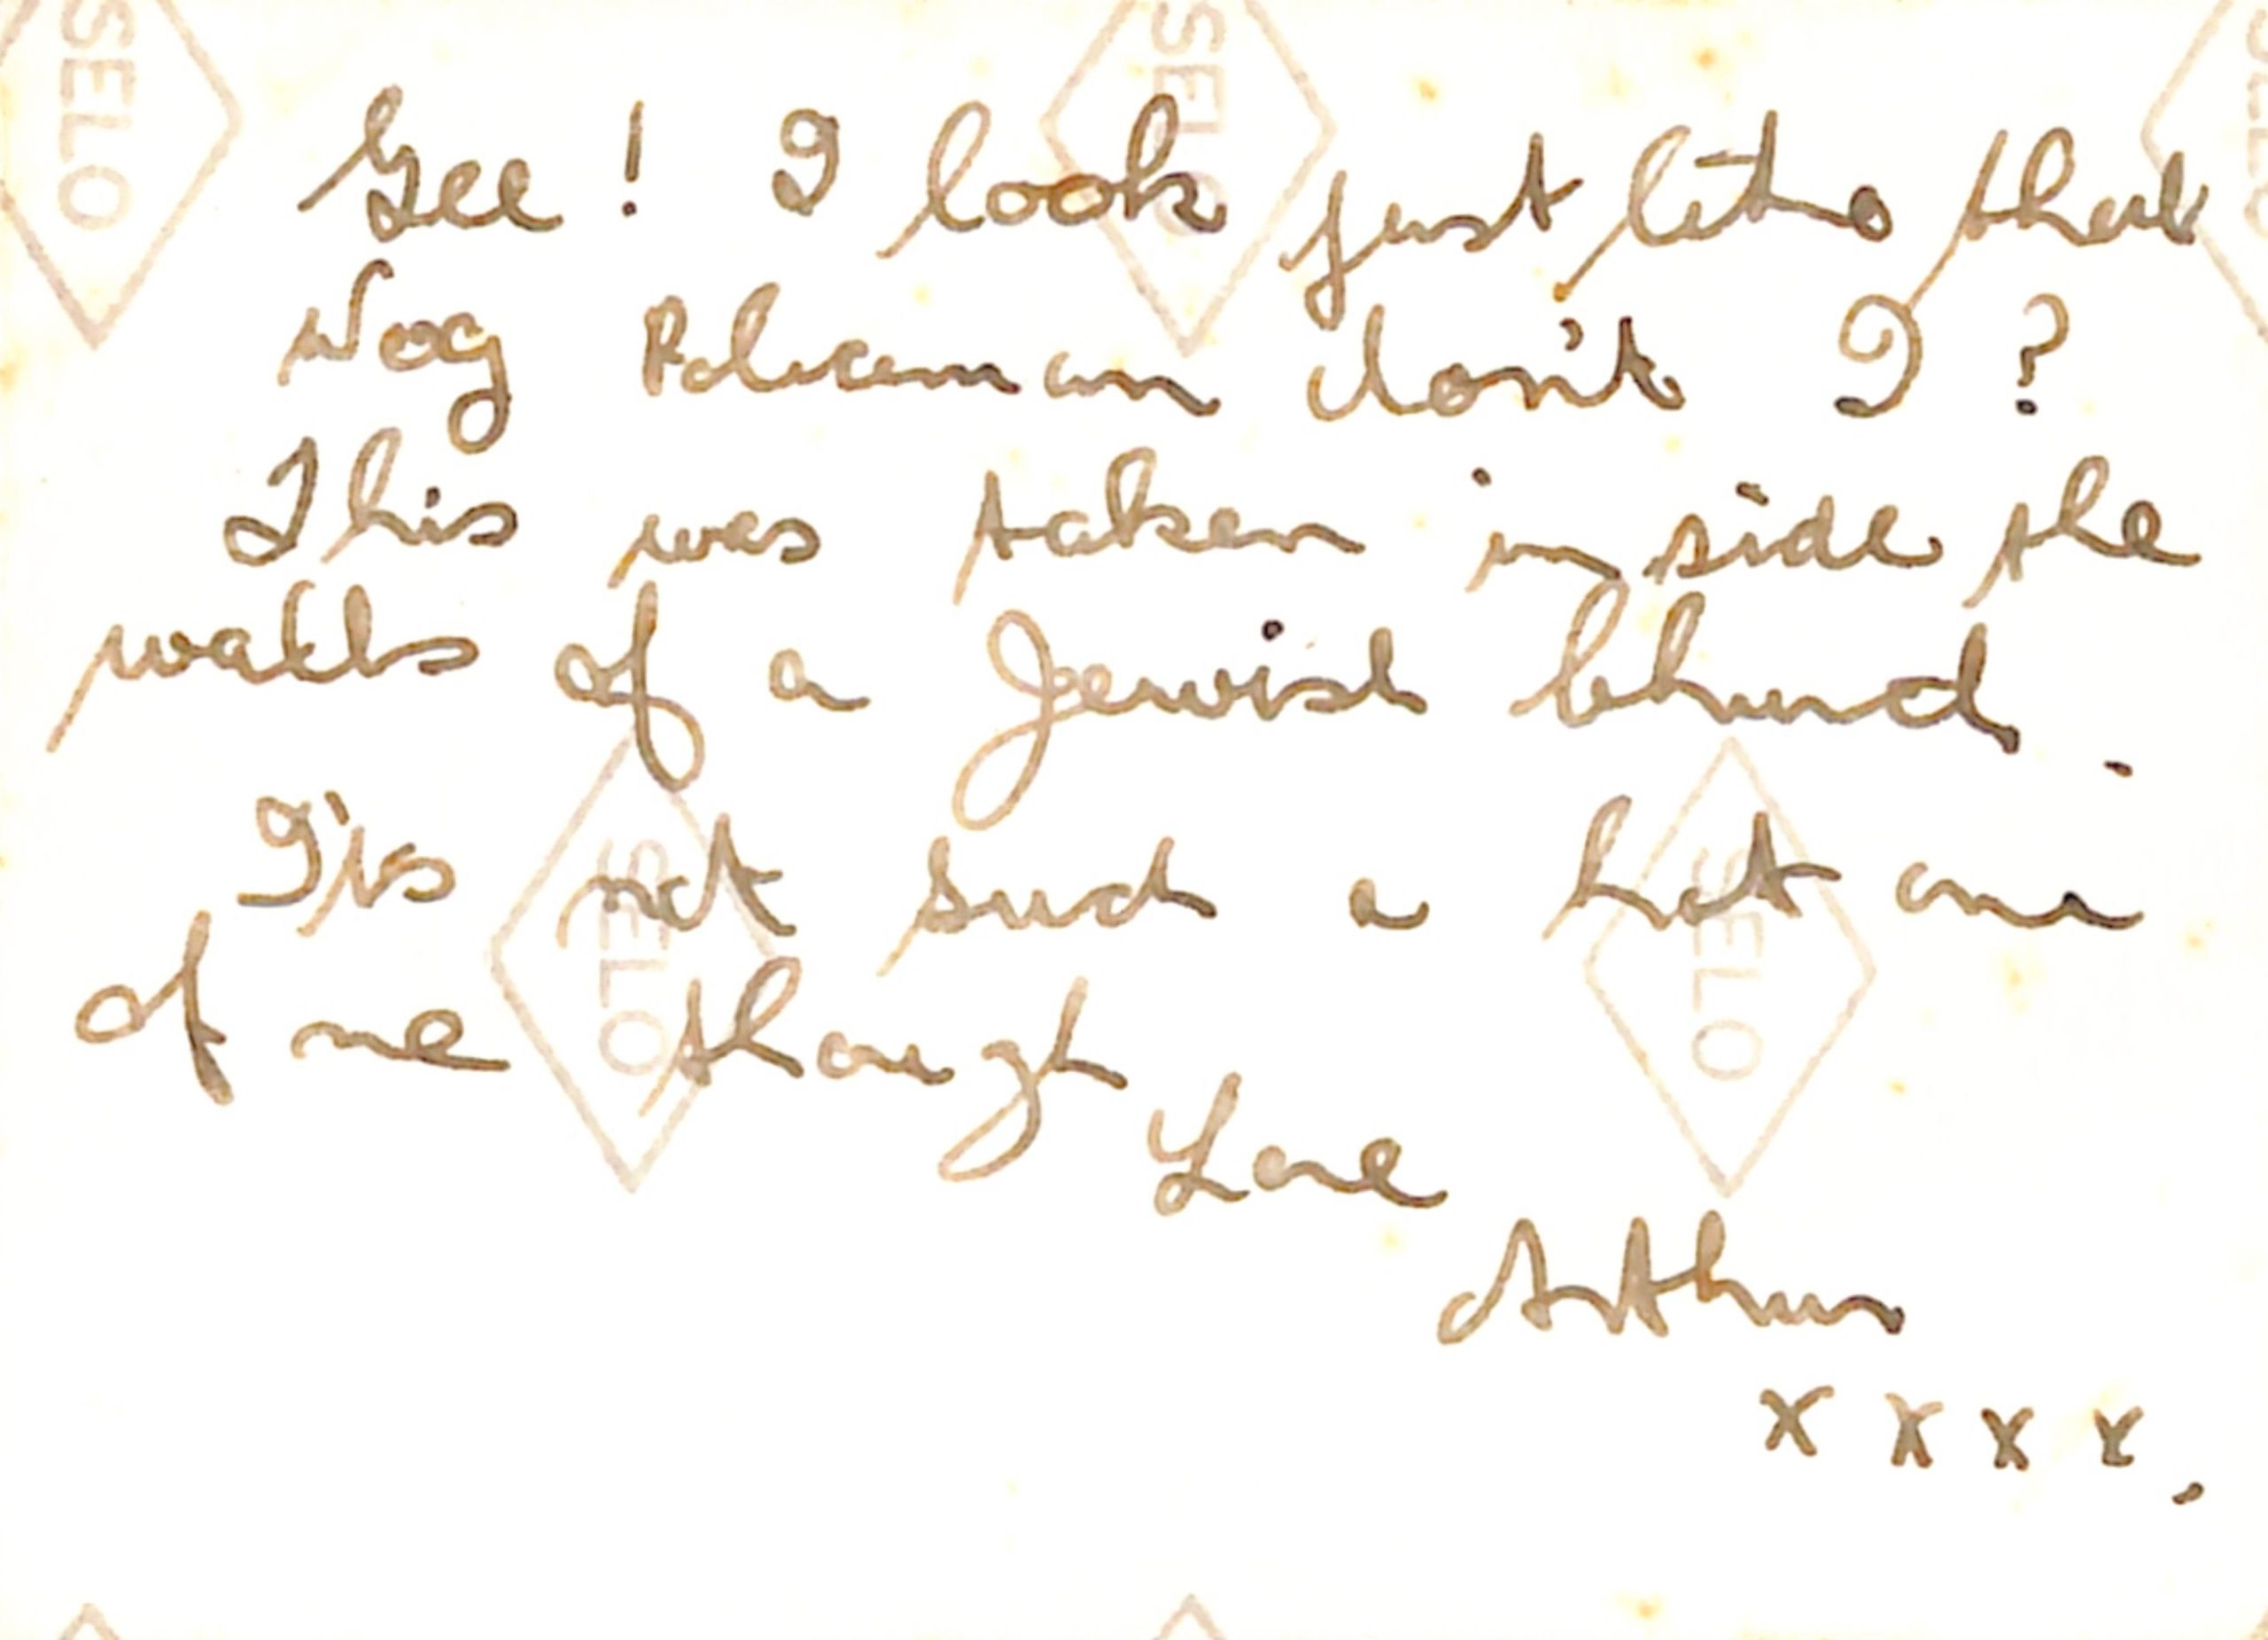 SELO SELO SELO
Gee! I look just like that
Wog Policeman don't I?
This was taken inside the
walls of a Jewish church.
It's not such a hot one
of me though
SELO SELO
Love
Arthur
x x x x.